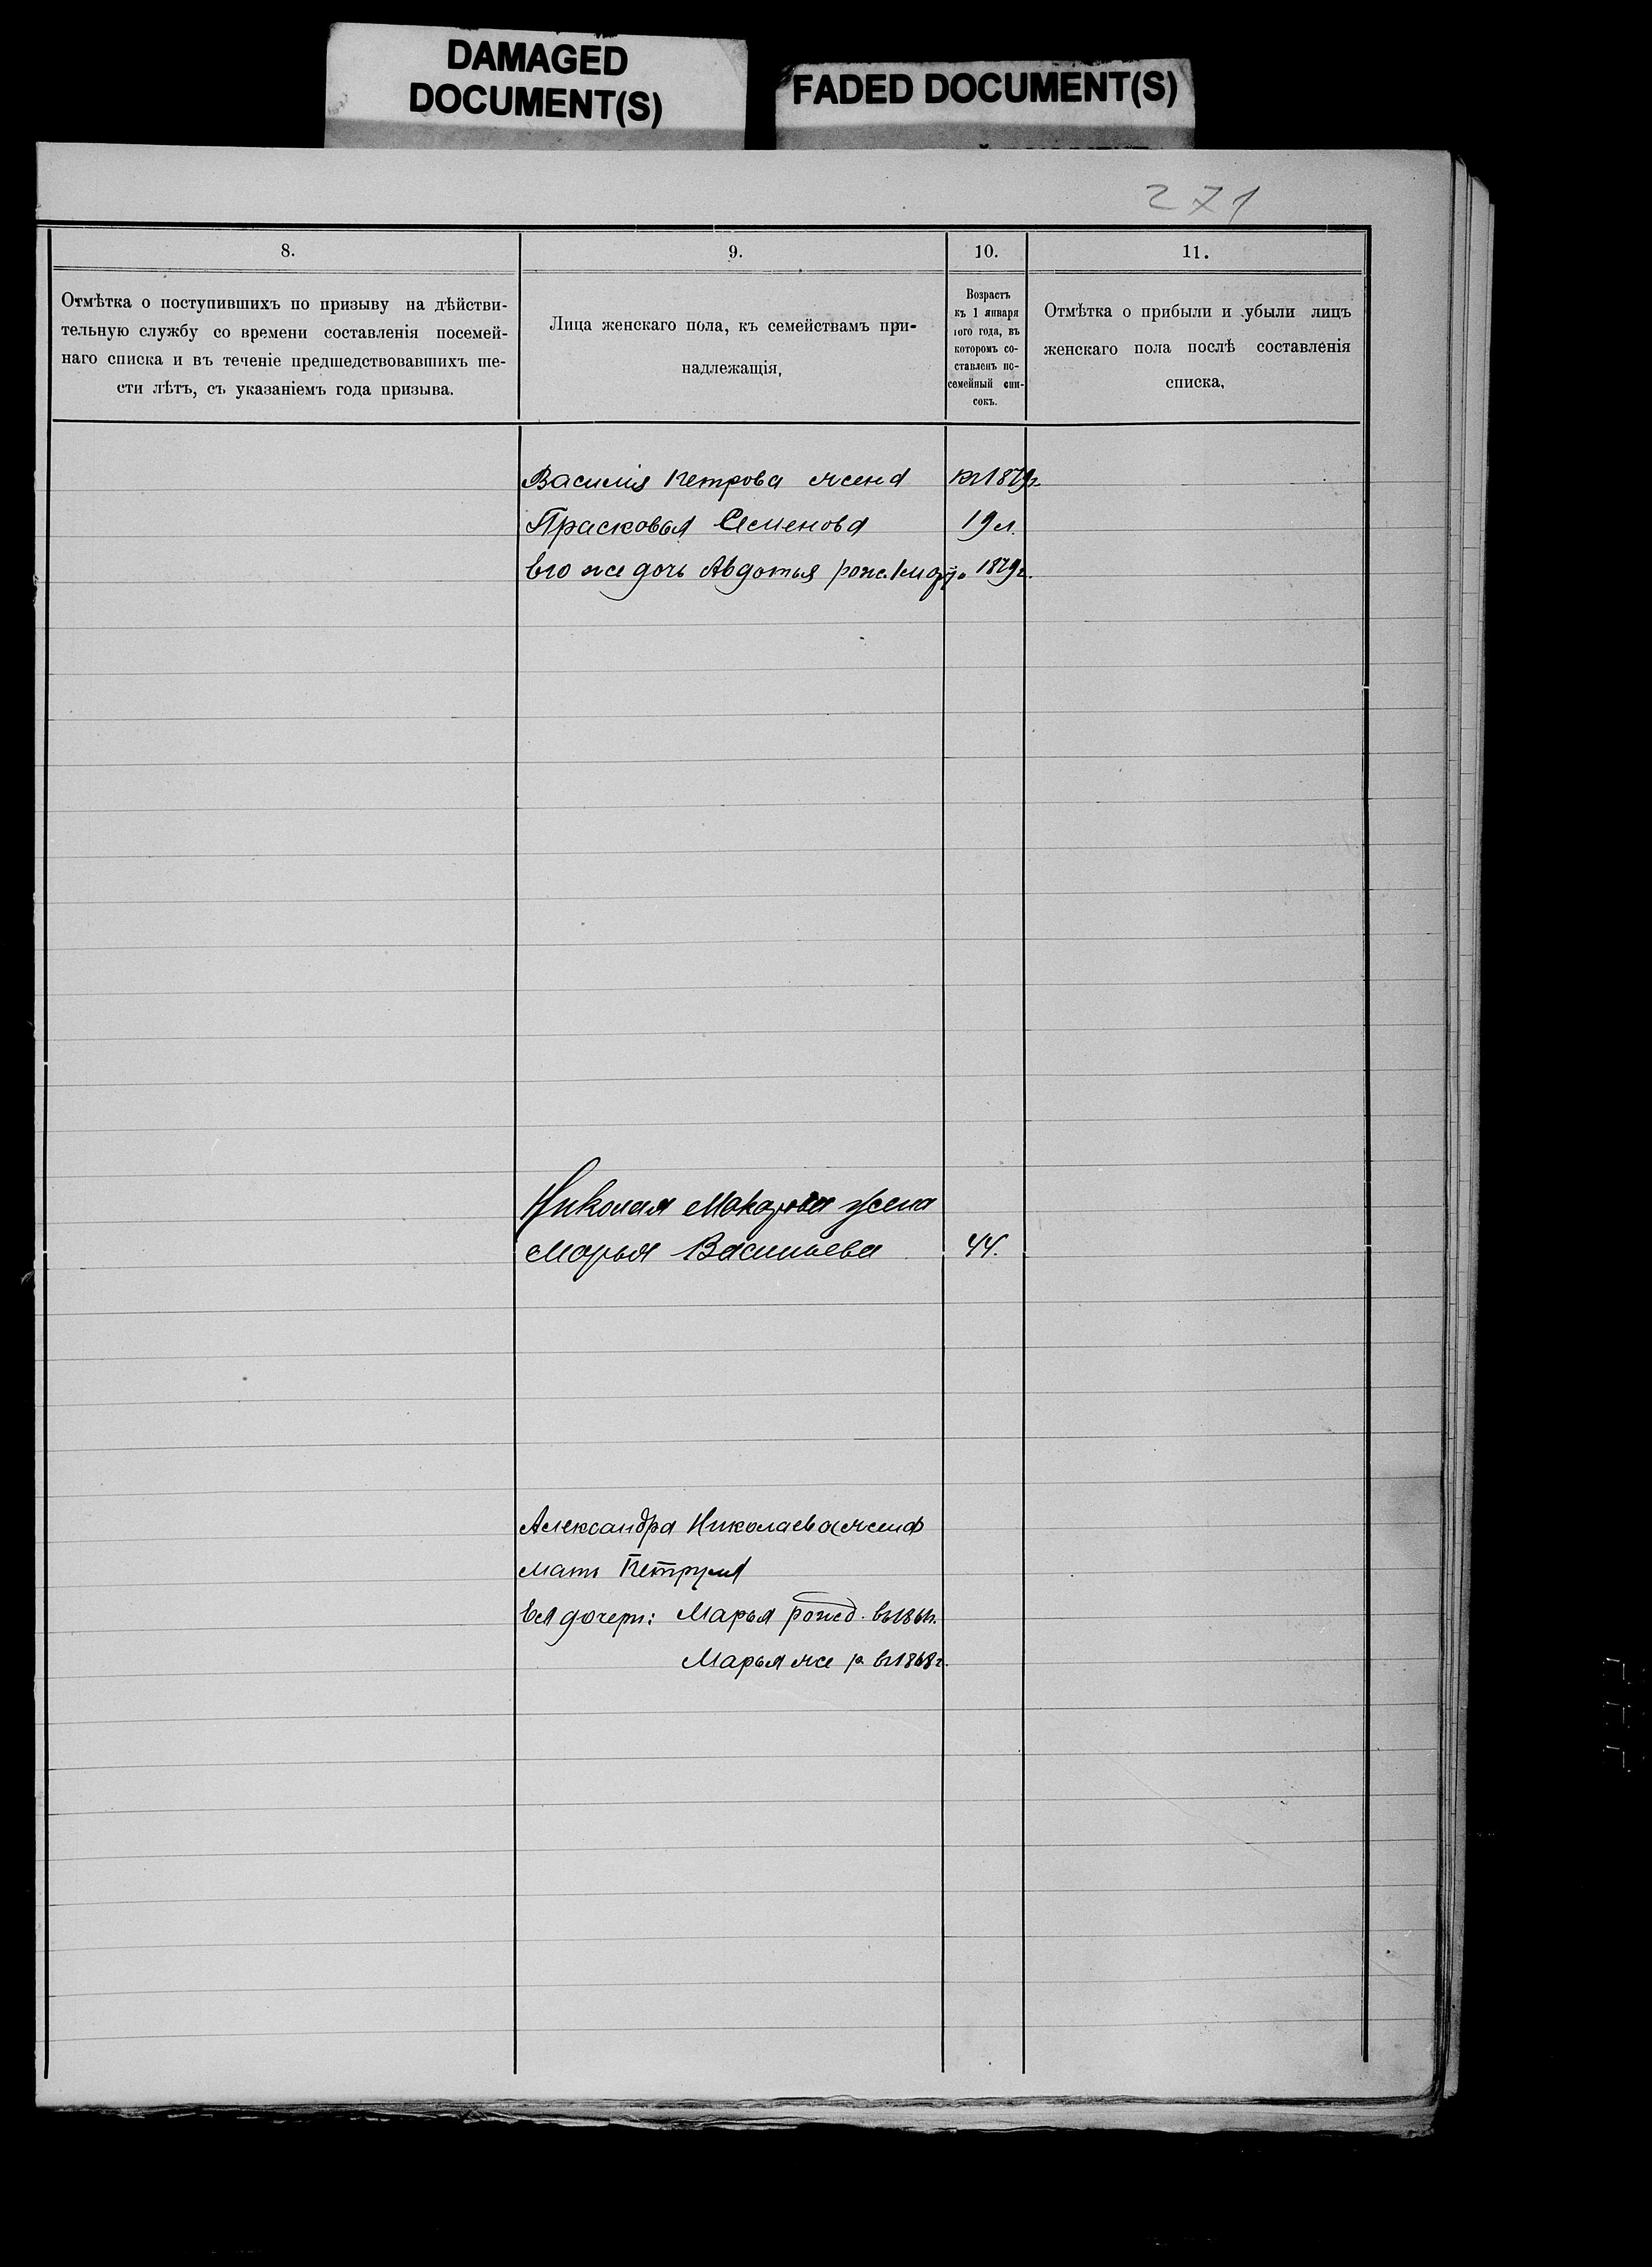 DAMAGED
DOCUMENT(S)
FADED DOCUMENT(S)
271
8.
9.
10.
11.
Отмѣтка о поступившихъ по призыву на дѣйстви-
тельную службу со времени составленія посемей-
наго списка и въ теченіе предшедствовавшихъ ше-
сти лѣтъ, съ указаніемъ года призыва.
Лица женскаго пола, къ семействамъ при-
надлежащія,
Возрастъ
къ 1 января
1ого года, въ
которомъ со-
ставленъ по-
семейный спи-
сокъ.
Отмѣтка о прибыли и убыли лицъ
женскаго пола послѣ составленія
списка,
Василія Петрова жена 1879г.
Прасковья Семенова 19 л.
Его же дочь Авдотья рож. 1 марта 1879г.
Николая Макарова жена
Марья Васильева 44.
Александра Николаева жена
мать
Ея дочери: Марья рожд. въ
Марья же р въ 1868г.